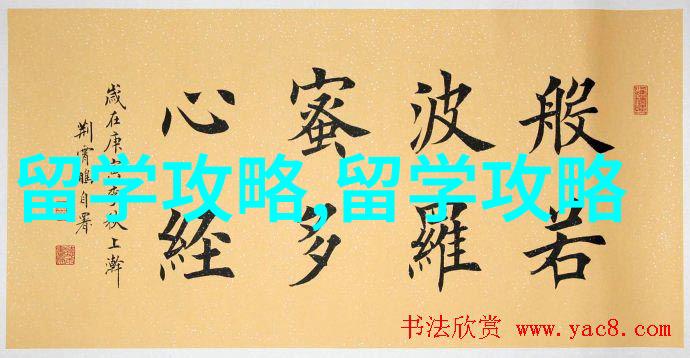 般若
波羅
蜜多
心経
歲在庚 上澣
荆霄鵬自署
留学攻略,留学攻略
书法欣赏 www.yac8.com